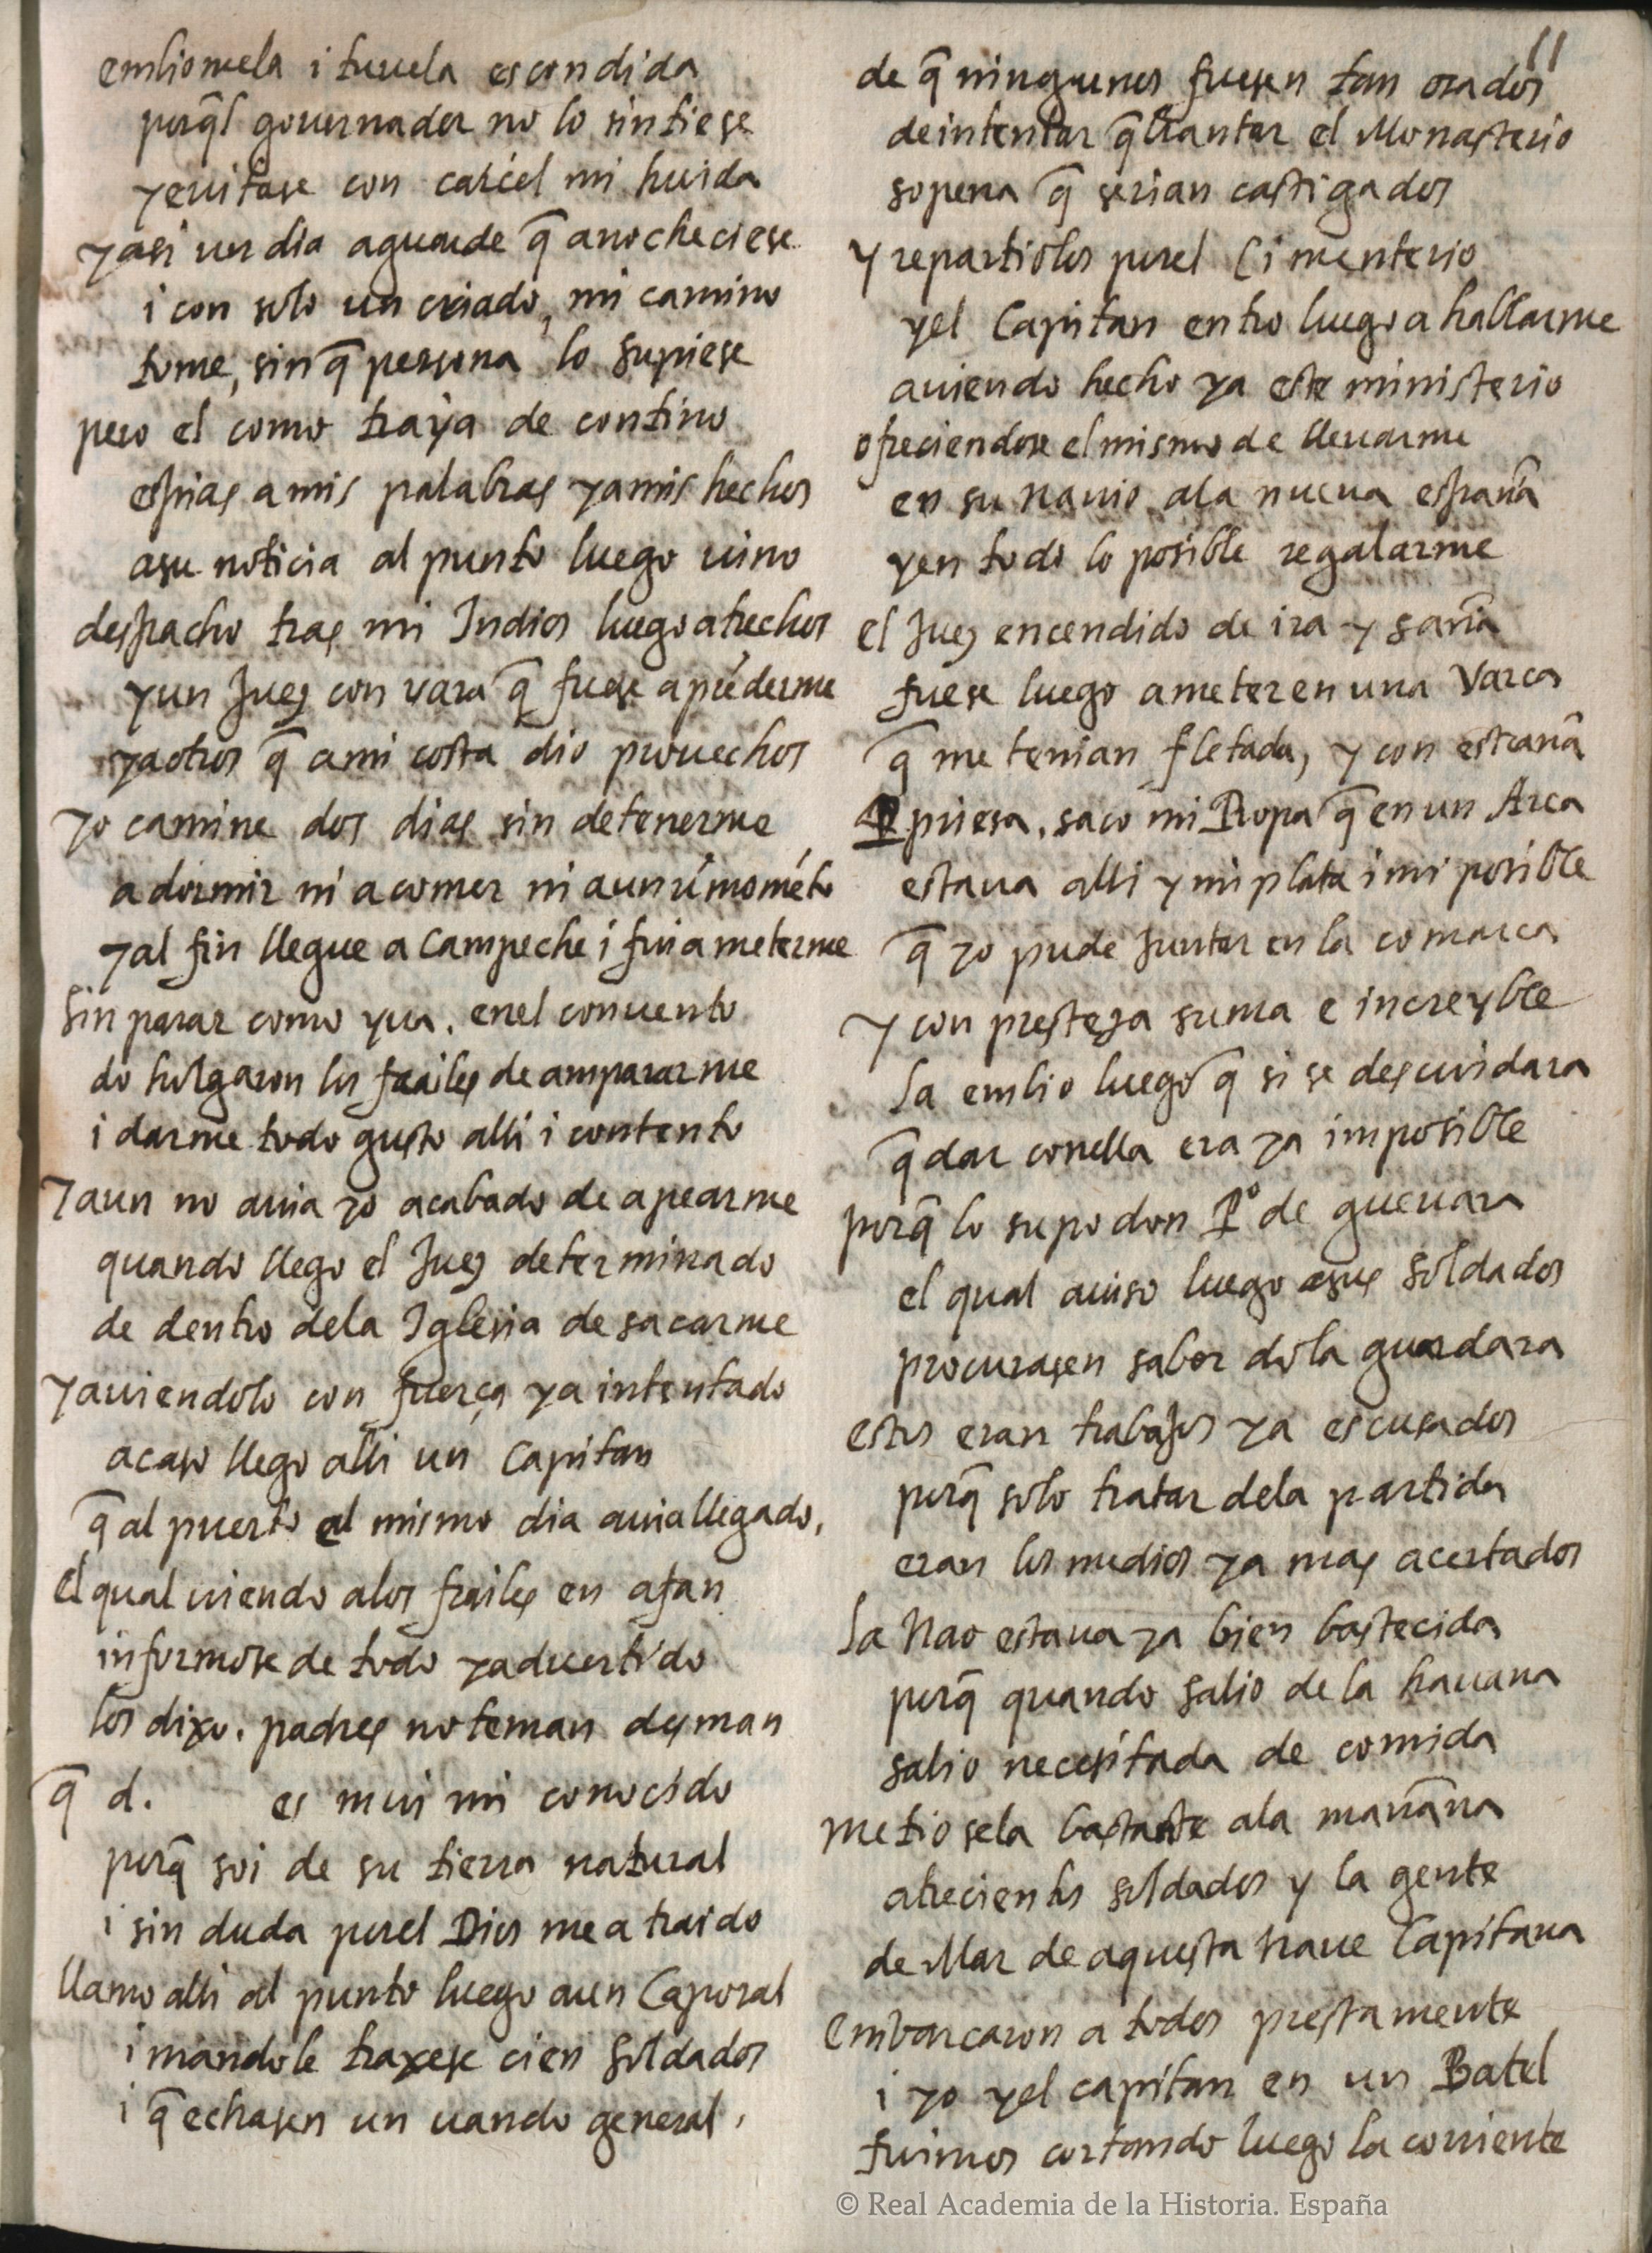 embiomela i tuuela escondida
porq̃l gouernador no lo sintiese
yeuitase con carcel mi huida
yasi un dia aguarde q̃ anocheciese
i con solo un criado, mi camino
tome, sin q̃ persona lo supiese
pero el como traya de contino
espias amis palabras yamis hechos
asu noticia al punto luego uino
despacho tras mi Indios luego atrechos
yun Juez con vara q̃ fuese apréderme
yaotros q̃ ami costa dio prouechos
yo camine dos dias sin detenerme
a dormir ni acomer ni aun ú mométo
yal fin llegue a Campeche i fui ameterme
sin parar como yua. enel conuento
do holgaron los frailes de ampararme
i darme todo gusto alli i contento
yaun no auia yo acabado de apearme
quando llego el Juez determinado
de dentro dela Iglesia de sacarme
yauiendolo con fuerça ya intentado
acaso llego alli un Capitan
q̃ al puerto el mismo dia auiallegado,
el qual uiendo alos frailes en afan
informose de todo yaduertido
los dixo. padres no teman desman
q̃ d. es mui mi conocido
porq̃ soi de su tierra natural
i sin duda porel Dios me a traido
llamo alli al punto luego aun Caporal
i mandole traxese cien soldados
i q̃ echasen un uando general,
11
de q̃ ningunos fuesen tan osados
deintentar q̃brantar el Monasterio
sopena q̃ serian castigados
y repartiolos porel Cimenterio
yel Capitan entro luego a hallarme
auiendo hecho ya este ministerio
ofreciendose el mismo de lleuarme
en su nauio ala nueua españa
yen todo lo posible regalarme
el Juez encendido de ira y saña
fuese luego ameter en una varca
q̃ me tenian fletada, y con estraña
Priesa, saco mi Ropa q̃ en un Arca
estaua alli y mi plata i mi posible
q̃ yo pude juntar en la comarca
y con presteza suma e increyble
la embio luego q̃ si se descuidara
q̃dar conella era ya imposible
porq̃ lo supo don Pº de gueuara
el qual auiso luego asus soldados
procurasen saber dola guardara
estos eran trabajos ya escusados
porq̃ solo tratar dela partida
eran los medios ya mas acertados
la Nao estaua ya bien bastecida
porq̃ quando salio de la hauana
salio necesitada de comida
metiosela bastante ala mañana
atrecientos soldados y la gente
de Mar de aquesta naue Capitana
embarcaron a todos prestamente
i yo yel capitan en un Batel
fuimos cortando luego la corriente
© Real Academia de la Historia. España